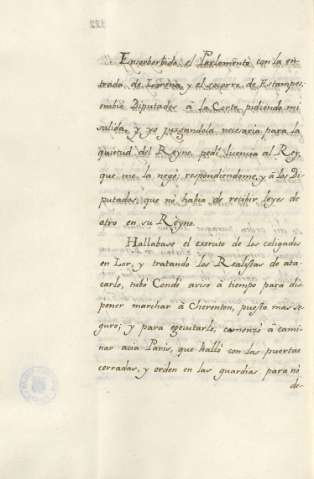 Ensorbertado el Parlamento con la en-
trada de Lorena y el socorro de Estampes,
embió Diputados à la Corte, pidiendo mi
salida, y yo juzgandola necesaria para la
quietud del Reyno pedí licencia al Rey,
que me la negó, respondiendome, y à los Di-
putados, que no habia de recibir leyes de
otro en su Reyno.
Hallabase el exército de los coligados
en Lor, y tratando los Realistas de ata-
carlo, tubo Condé aviso à tiempo para dis-
poner marchar à Cherenton, puesto mas se-
guro; y para egecutarlo, comenzó à cami-
nar acia Paris, que halló con las puertas
cerradas, y orden en las guardias para no
de-